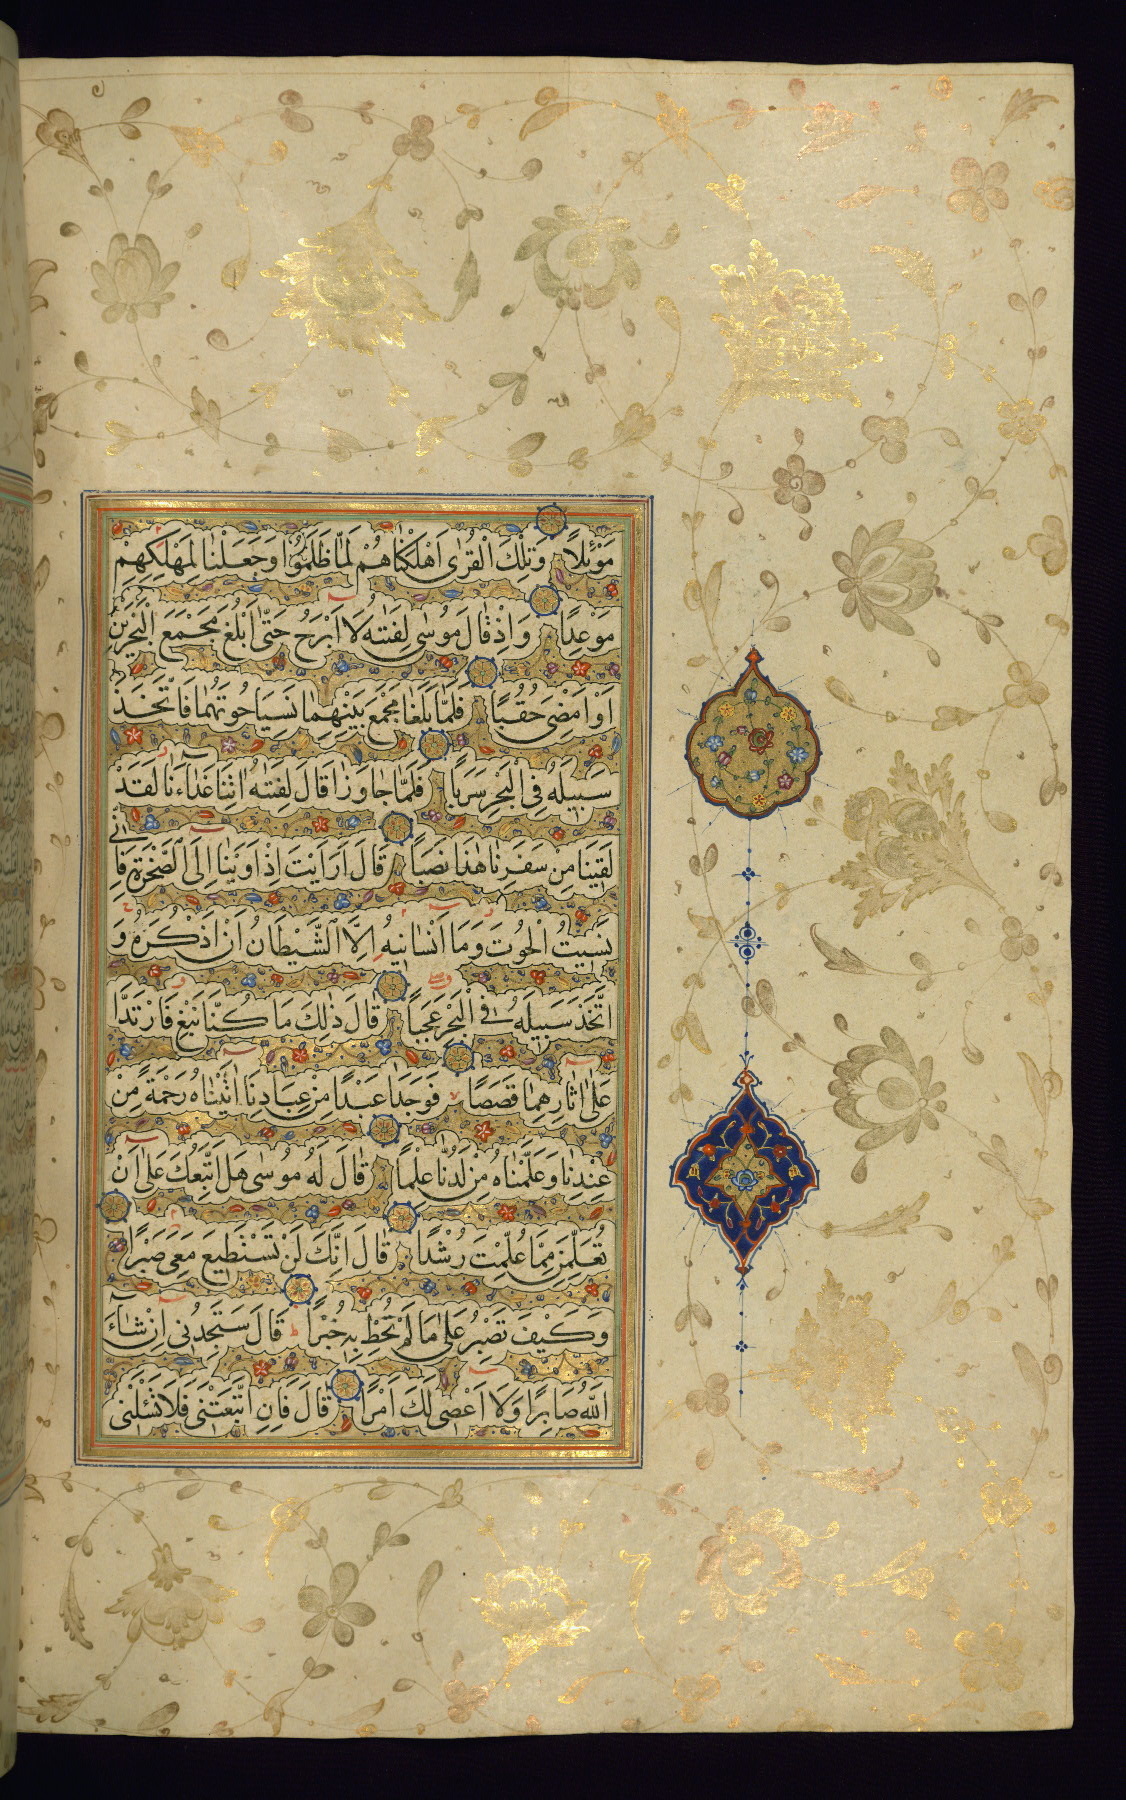 مَوْئِلًا وَتِلْكَ الْقُرٰى اَهْلَكْنَاهُمْ لَمَّا ظَلَمُوْا وَجَعَلْنَا لِمَهْلِكِهِمْ
مَوْعِدًا وَاِذْ قَالَ مُوسٰى لِفَتٰیهُ لَا اَبْرَحُ حَتّٰى اَبْلُغَ مَجْمَعَ الْبَحْرَيْنِ
اَوْ اَمْضِىَ حُقُبًا فَلَمَّا بَلَغَا مَجْمَعَ بَيْنِهِمَا نَسِيَا حُوتَهُمَا فَاتَّخَذَ
سَبِيلَهُ فِى الْبَحْرِ سَرَبًا فَلَمَّا جَاوَزَا قَالَ لِفَتٰیهُ اٰتِنَا غَدَاءَنَا لَقَدْ
لَقِينَا مِنْ سَفَرِنَا هٰذَا نَصَبًا قَالَ اَرَاَيْتَ اِذْ اَوَيْنَا اِلَى الصَّخْرَةِ فَاِنّٖى
نَسِيتُ الْحُوتَ وَمَا اَنْسَانِيهُ اِلَّا الشَّيْطَانُ اَنْ اَذْكُرَهُ وَ
اتَّخَذَ سَبِيلَهُ فِى الْبَحْرِ عَجَبًا قَالَ ذٰلِكَ مَا كُنَّا نَبْغِ فَارْتَدَّا
عَلٰى اٰثَارِهِمَا قَصَصًا فَوَجَدَا عَبْدًا مِنْ عِبَادِنَا اٰتَيْنَاهُ رَحْمَةً مِنْ
عِنْدِنَا وَعَلَّمْنَاهُ مِنْ لَدُنَّا عِلْمًا قَالَ لَهُ مُوسٰى هَلْ اَتَّبِعُكَ عَلٰى اَنْ
تُعَلِّمَنِ مِمَّا عُلِّمْتَ رُشْدًا قَالَ اِنَّكَ لَنْ تَسْتَطِيعَ مَعِىَ صَبْرًا
وَكَيْفَ تَصْبِرُ عَلٰى مَا لَمْ تُحِطْ بِهٖ خُبْرًا قَالَ سَتَجِدُنِى اِنْ شَاءَ
اللّٰهُ صَابِرًا وَلَا اَعْصٖى لَكَ اَمْرًا قَالَ فَاِنِ اتَّبَعْتَنٖى فَلَا تَسْئَلْنٖى